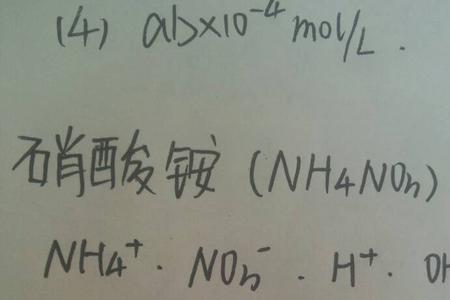 (4) ab×10⁻⁴ mol/L .
硝酸铵 (NH4NO3)
NH4⁺ · NO3⁻ · H⁺ · OH